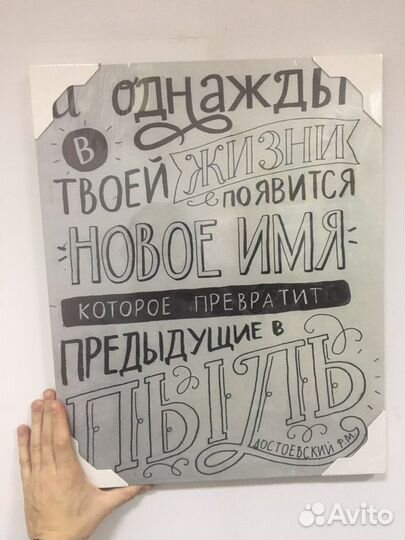 и однажды
в
твоей жизни
появится
новое имя
которое превратит
предыдущие в
пыль
Достоевский Ф.М.
Avito